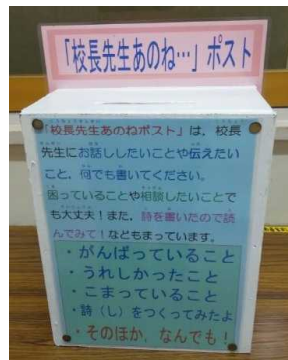 「校長先生あのね…」ポスト
「校長先生あのねポスト」は、校長
先生にお話ししたいことや伝えたい
こと、何でも書いてください。
困っていることや相談したいことで
も大丈夫！また、詩を書いたので読
んでみて！などもまっています。
・がんばっていること
・うれしかったこと
・こまっていること
・詩（し）をつくってみたよ
・そのほか、なんでも！